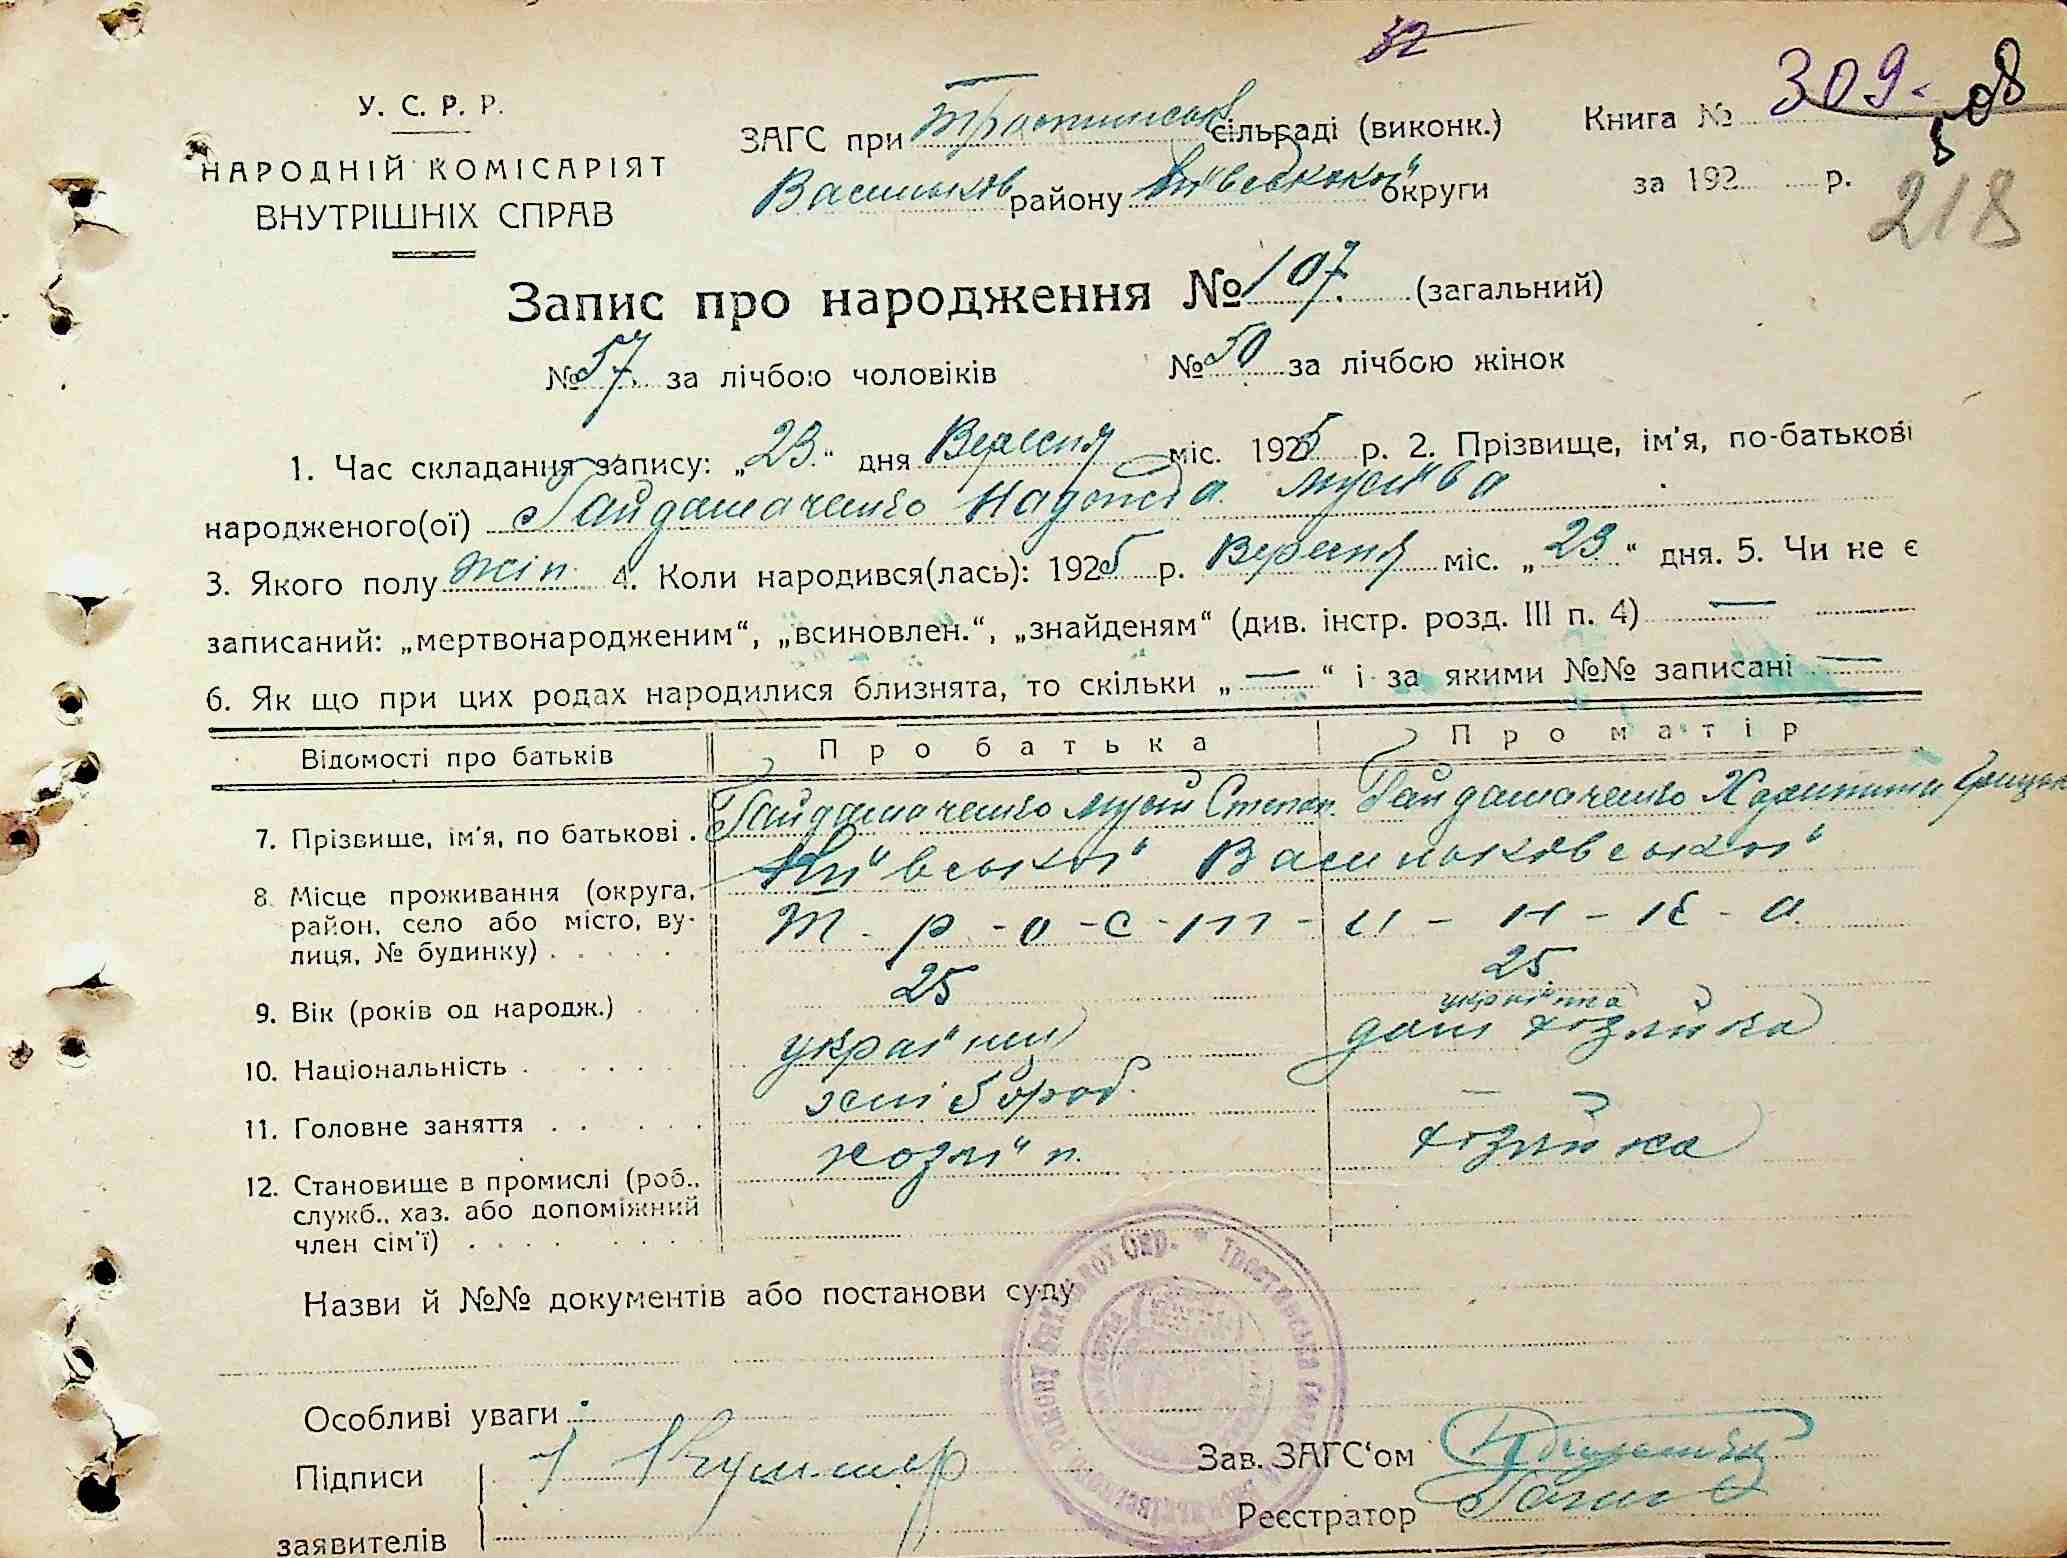 32
У. С. Р. Р.
НАРОДНІЙ КОМІСАРІЯТ
ВНУТРІШНІХ СПРАВ
ЗАГС при Тростинськ. сільраді (виконк.)
Васильків району Київської округи
Книга № 309. 508
за 192 р.
218
Запис про народження № 107. (загальний)
№ 57. за лічбою чоловіків № 50 за лічбою жінок
1. Час складання запису: „23.“ дня Вересня міс. 1925 р. 2. Прізвище, ім'я, по-батькові
народженого(ої) Гайдамаченко Надежда Мусієва
3. Якого полу жін. 4. Коли народився(лась): 1925 р. Вересня міс. „23.“ дня. 5. Чи не є
записаний: „мертвонародженим“, „всиновлен.“, „знайденям“ (див. інстр. розд. III п. 4) —
6. Як що при цих родах народилися близнята, то скільки „—“ і за якими №№ записані —
Відомості про батьків Про батька Про матір
7. Прізвище, ім'я, по батькові . Гайдамаченко Мусій Степан. Гайдамаченко Харитина Грицьк
8. Місце проживання (округа, Київської Васильківської
район, село або місто, ву- Т-р-о-с-т-и-н-к-а.
лиця, № будинку)
9. Вік (років од народж.) 25 25
10. Національність українц українка
дом хозяйка
11. Головне заняття хлібороб. —
12. Становище в промислі (роб., хозяїн. хозяйка
служб., хаз. або допоміжний
член сім'ї)
Назви й №№ документів або постанови суду
Особливі уваги
Підписи
заявителів
Зав. ЗАГС'ом
Реєстратор